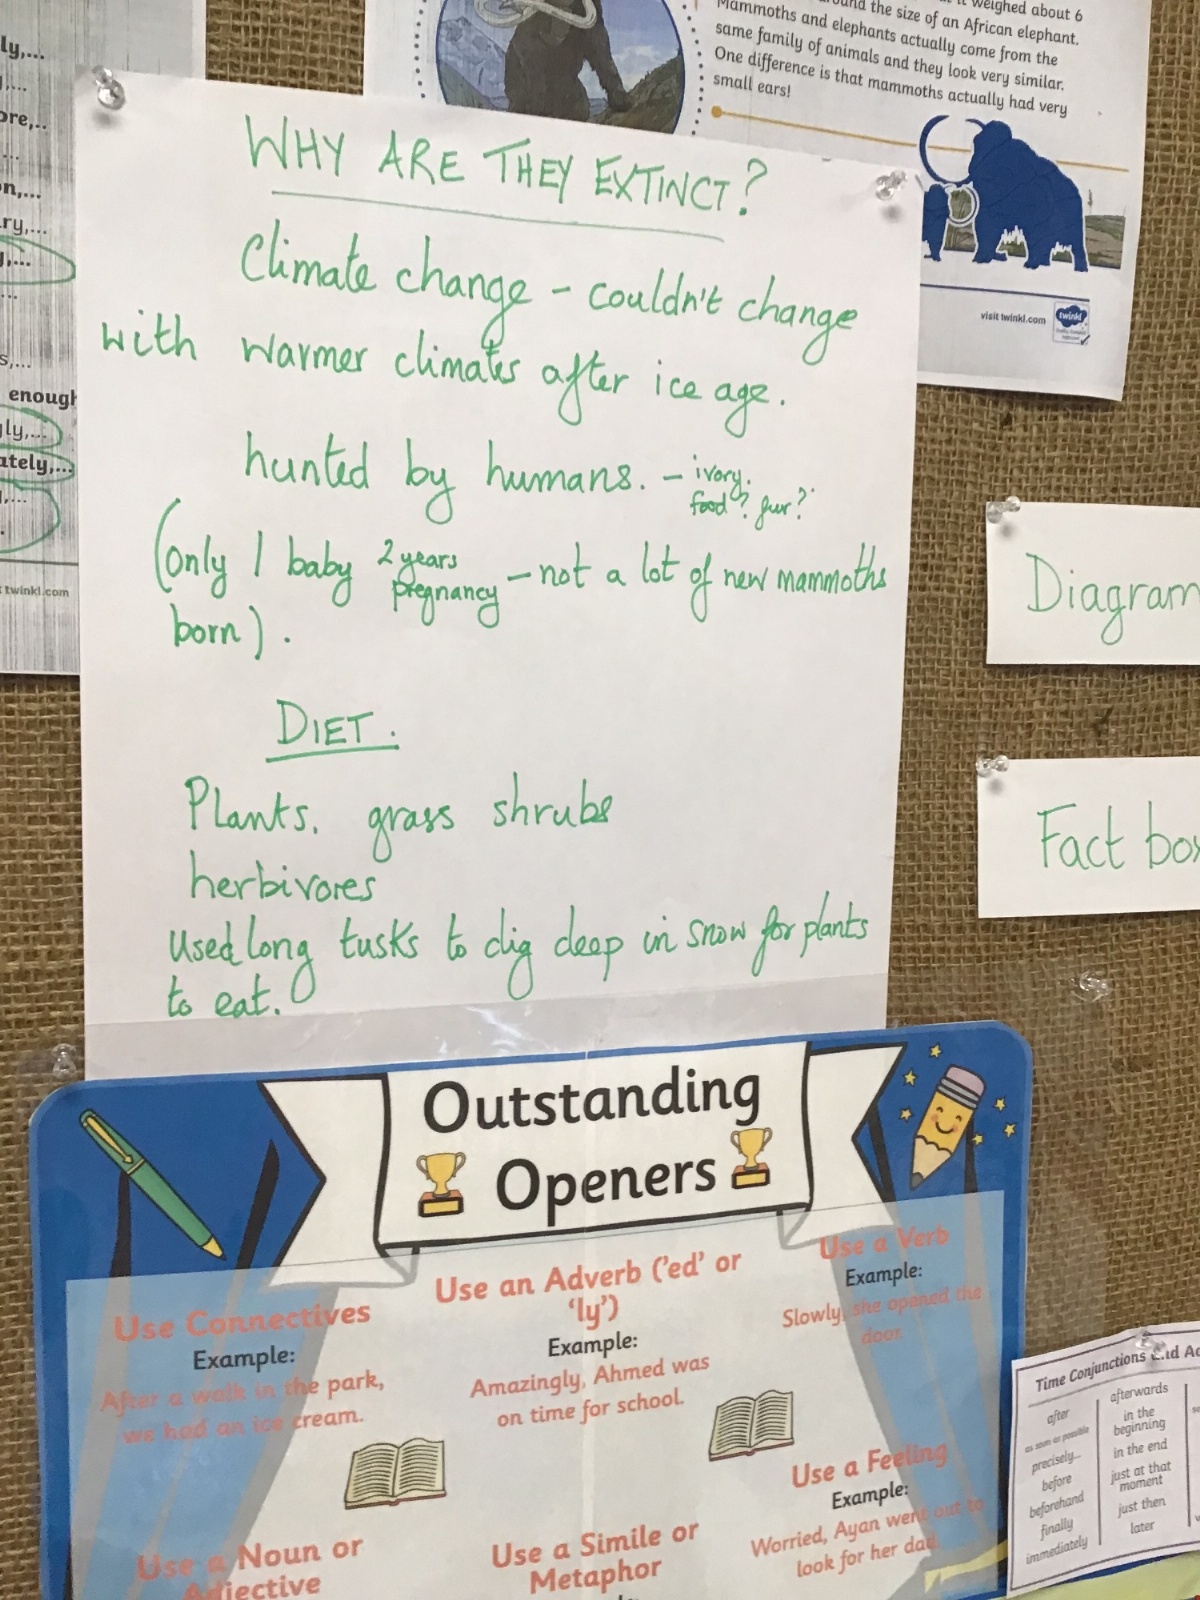 ly,...
ore,..
n,...
ry,...
s,...
enough
ly,...
ately,...
twinkl.com
weighed about 6
around the size of an African elephant.
Mammoths and elephants actually come from the
same family of animals and they look very similar.
One difference is that mammoths actually had very
small ears!
visit twinkl.com
twinkl
WHY ARE THEY EXTINCT?
Climate change - couldn't change
with warmer climates after ice age.
hunted by humans. - ivory.
food? fur?
(only 1 baby 2 years
pregnancy - not a lot of new mammoths
born).
DIET.
Plants. grass shrubs
herbivores
used long tusks to dig deep in snow for plants
to eat.
Diagram
Fact box
Outstanding
Openers
Use Connectives
Example:
After a walk in the park,
we had an ice cream.
Use an Adverb ('ed' or
'ly')
Example:
Amazingly, Ahmed was
on time for school.
Use a Verb
Example:
Slowly, she opened the
door.
Use a Feeling
Example:
Worried, Ayan went out to
look for her dad.
Use a Noun or
Adjective
Use a Simile or
Metaphor
Time Conjunctions and Ad
after
as soon as possible
precisely...
before
beforehand
finally
immediately
afterwards
in the
beginning
in the end
just at that
moment
just then
later